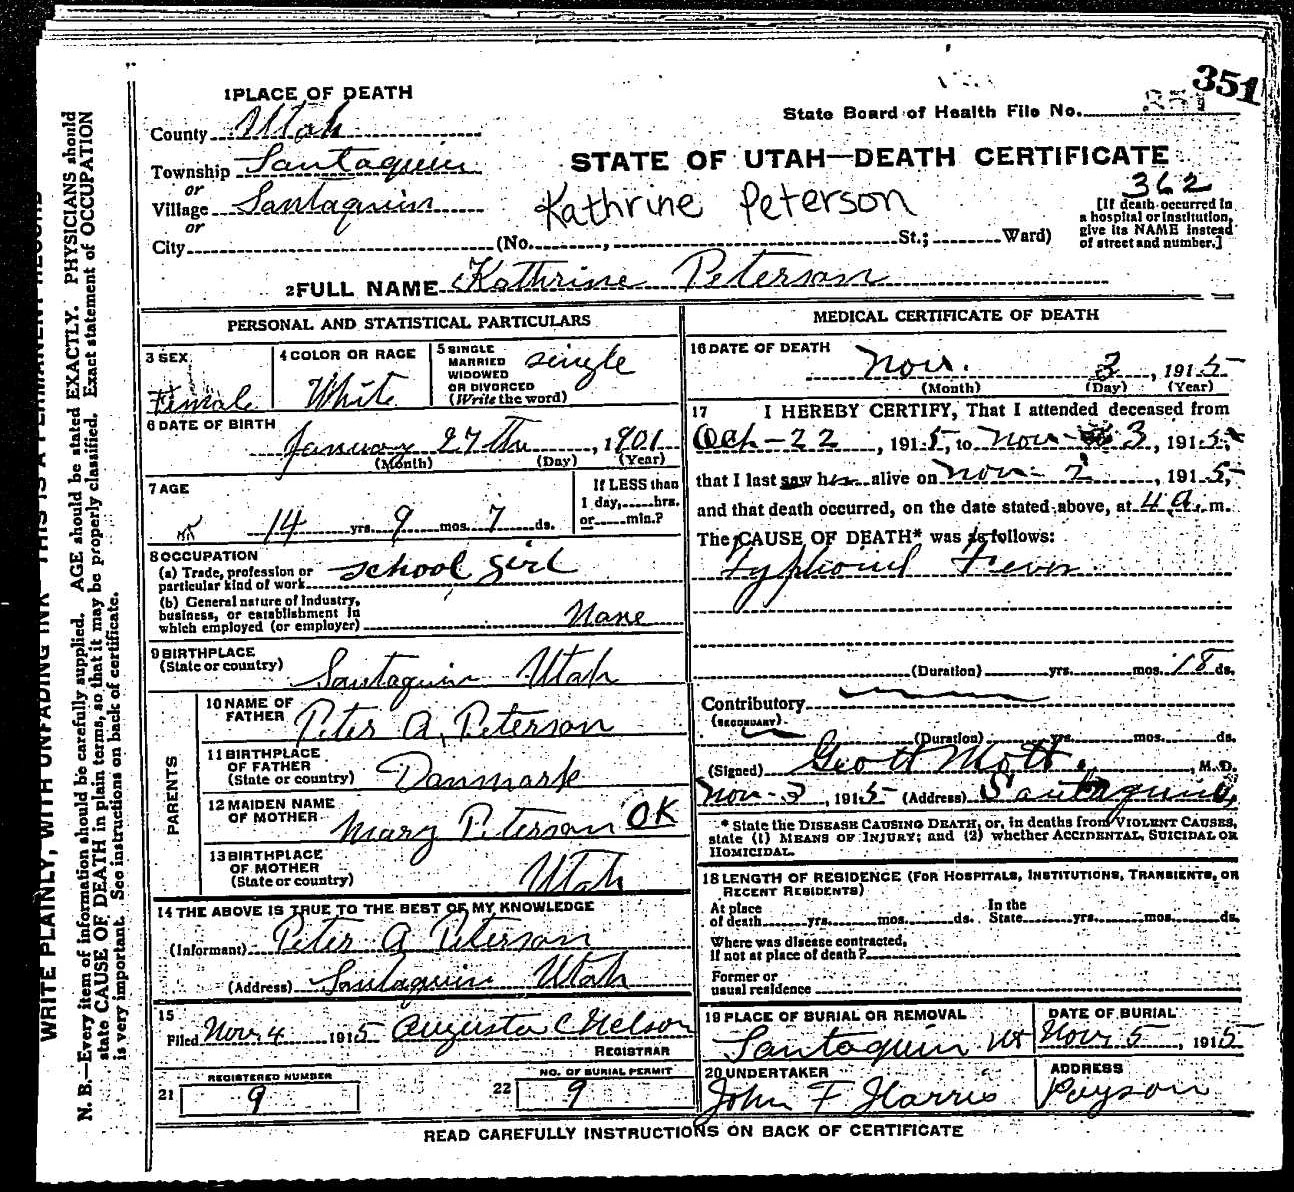 351
1 PLACE OF DEATH
State Board of Health File No.
County Utah
Township Santaquin
or
Village Santaquin
or
City (No. , St.; Ward)
STATE OF UTAH—DEATH CERTIFICATE
362
Kathrine Peterson
[If death occurred in
a hospital or institution,
give its NAME instead
of street and number.]
2 FULL NAME Kathrine Peterson
PERSONAL AND STATISTICAL PARTICULARS
3 SEX
Female
4 COLOR OR RACE
White
5 SINGLE
MARRIED
WIDOWED
OR DIVORCED
(Write the word)
single
6 DATE OF BIRTH
January 27th , 1901
(Month) (Day) (Year)
7 AGE
14 yrs. 9 mos. 7 ds.
If LESS than
1 day, hrs.
or min.?
8 OCCUPATION
(a) Trade, profession or
particular kind of work school girl
(b) General nature of industry,
business, or establishment in
which employed (or employer) None
9 BIRTHPLACE
(State or country) Santaquin Utah
PARENTS
10 NAME OF
FATHER Peter A. Peterson
11 BIRTHPLACE
OF FATHER
(State or country) Danmark
12 MAIDEN NAME
OF MOTHER Mary Peterson OK
13 BIRTHPLACE
OF MOTHER
(State or country) Utah
14 THE ABOVE IS TRUE TO THE BEST OF MY KNOWLEDGE
(Informant) Peter A Peterson
(Address) Santaquin Utah
15
Filed Nov 4 1915 Augusta C Nelson
REGISTRAR
REGISTERED NUMBER
21 9
NO. OF BURIAL PERMIT
22 9
MEDICAL CERTIFICATE OF DEATH
16 DATE OF DEATH
Nov. 3 , 1915
(Month) (Day) (Year)
17 I HEREBY CERTIFY, That I attended deceased from
Oct-22 , 1915, to Nov- 3, 1915,
that I last saw her alive on Nov- 2 , 1915,
and that death occurred, on the date stated above, at 4 a. m.
The CAUSE OF DEATH* was as follows:
Typhoid Fever
(Duration) yrs. mos. 18 ds.
Contributory
(SECONDARY)
(Duration) yrs. mos. ds.
(Signed) Mott. , M. D.
Nov-3 , 1915 (Address) Santaquin,
* State the DISEASE CAUSING DEATH, or, in deaths from VIOLENT CAUSES,
state (1) MEANS OF INJURY; and (2) whether ACCIDENTAL, SUICIDAL OR
HOMICIDAL.
18 LENGTH OF RESIDENCE (FOR HOSPITALS, INSTITUTIONS, TRANSIENTS, OR
RECENT RESIDENTS)
At place
of death yrs. mos. ds.
In the
State yrs. mos. ds.
Where was disease contracted,
if not at place of death?
Former or
usual residence
19 PLACE OF BURIAL OR REMOVAL
Santaquin Ut
DATE OF BURIAL
Nov 5 , 1915
20 UNDERTAKER
John F Harris
ADDRESS
Payson
READ CAREFULLY INSTRUCTIONS ON BACK OF CERTIFICATE
WRITE PLAINLY, WITH UNFADING INK—THIS IS A PERMANENT RECORD
N. B.—Every item of information should be carefully supplied. AGE should be stated EXACTLY. PHYSICIANS should
state CAUSE OF DEATH in plain terms, so that it may be properly classified. Exact statement of OCCUPATION
is very important. See instructions on back of certificate.